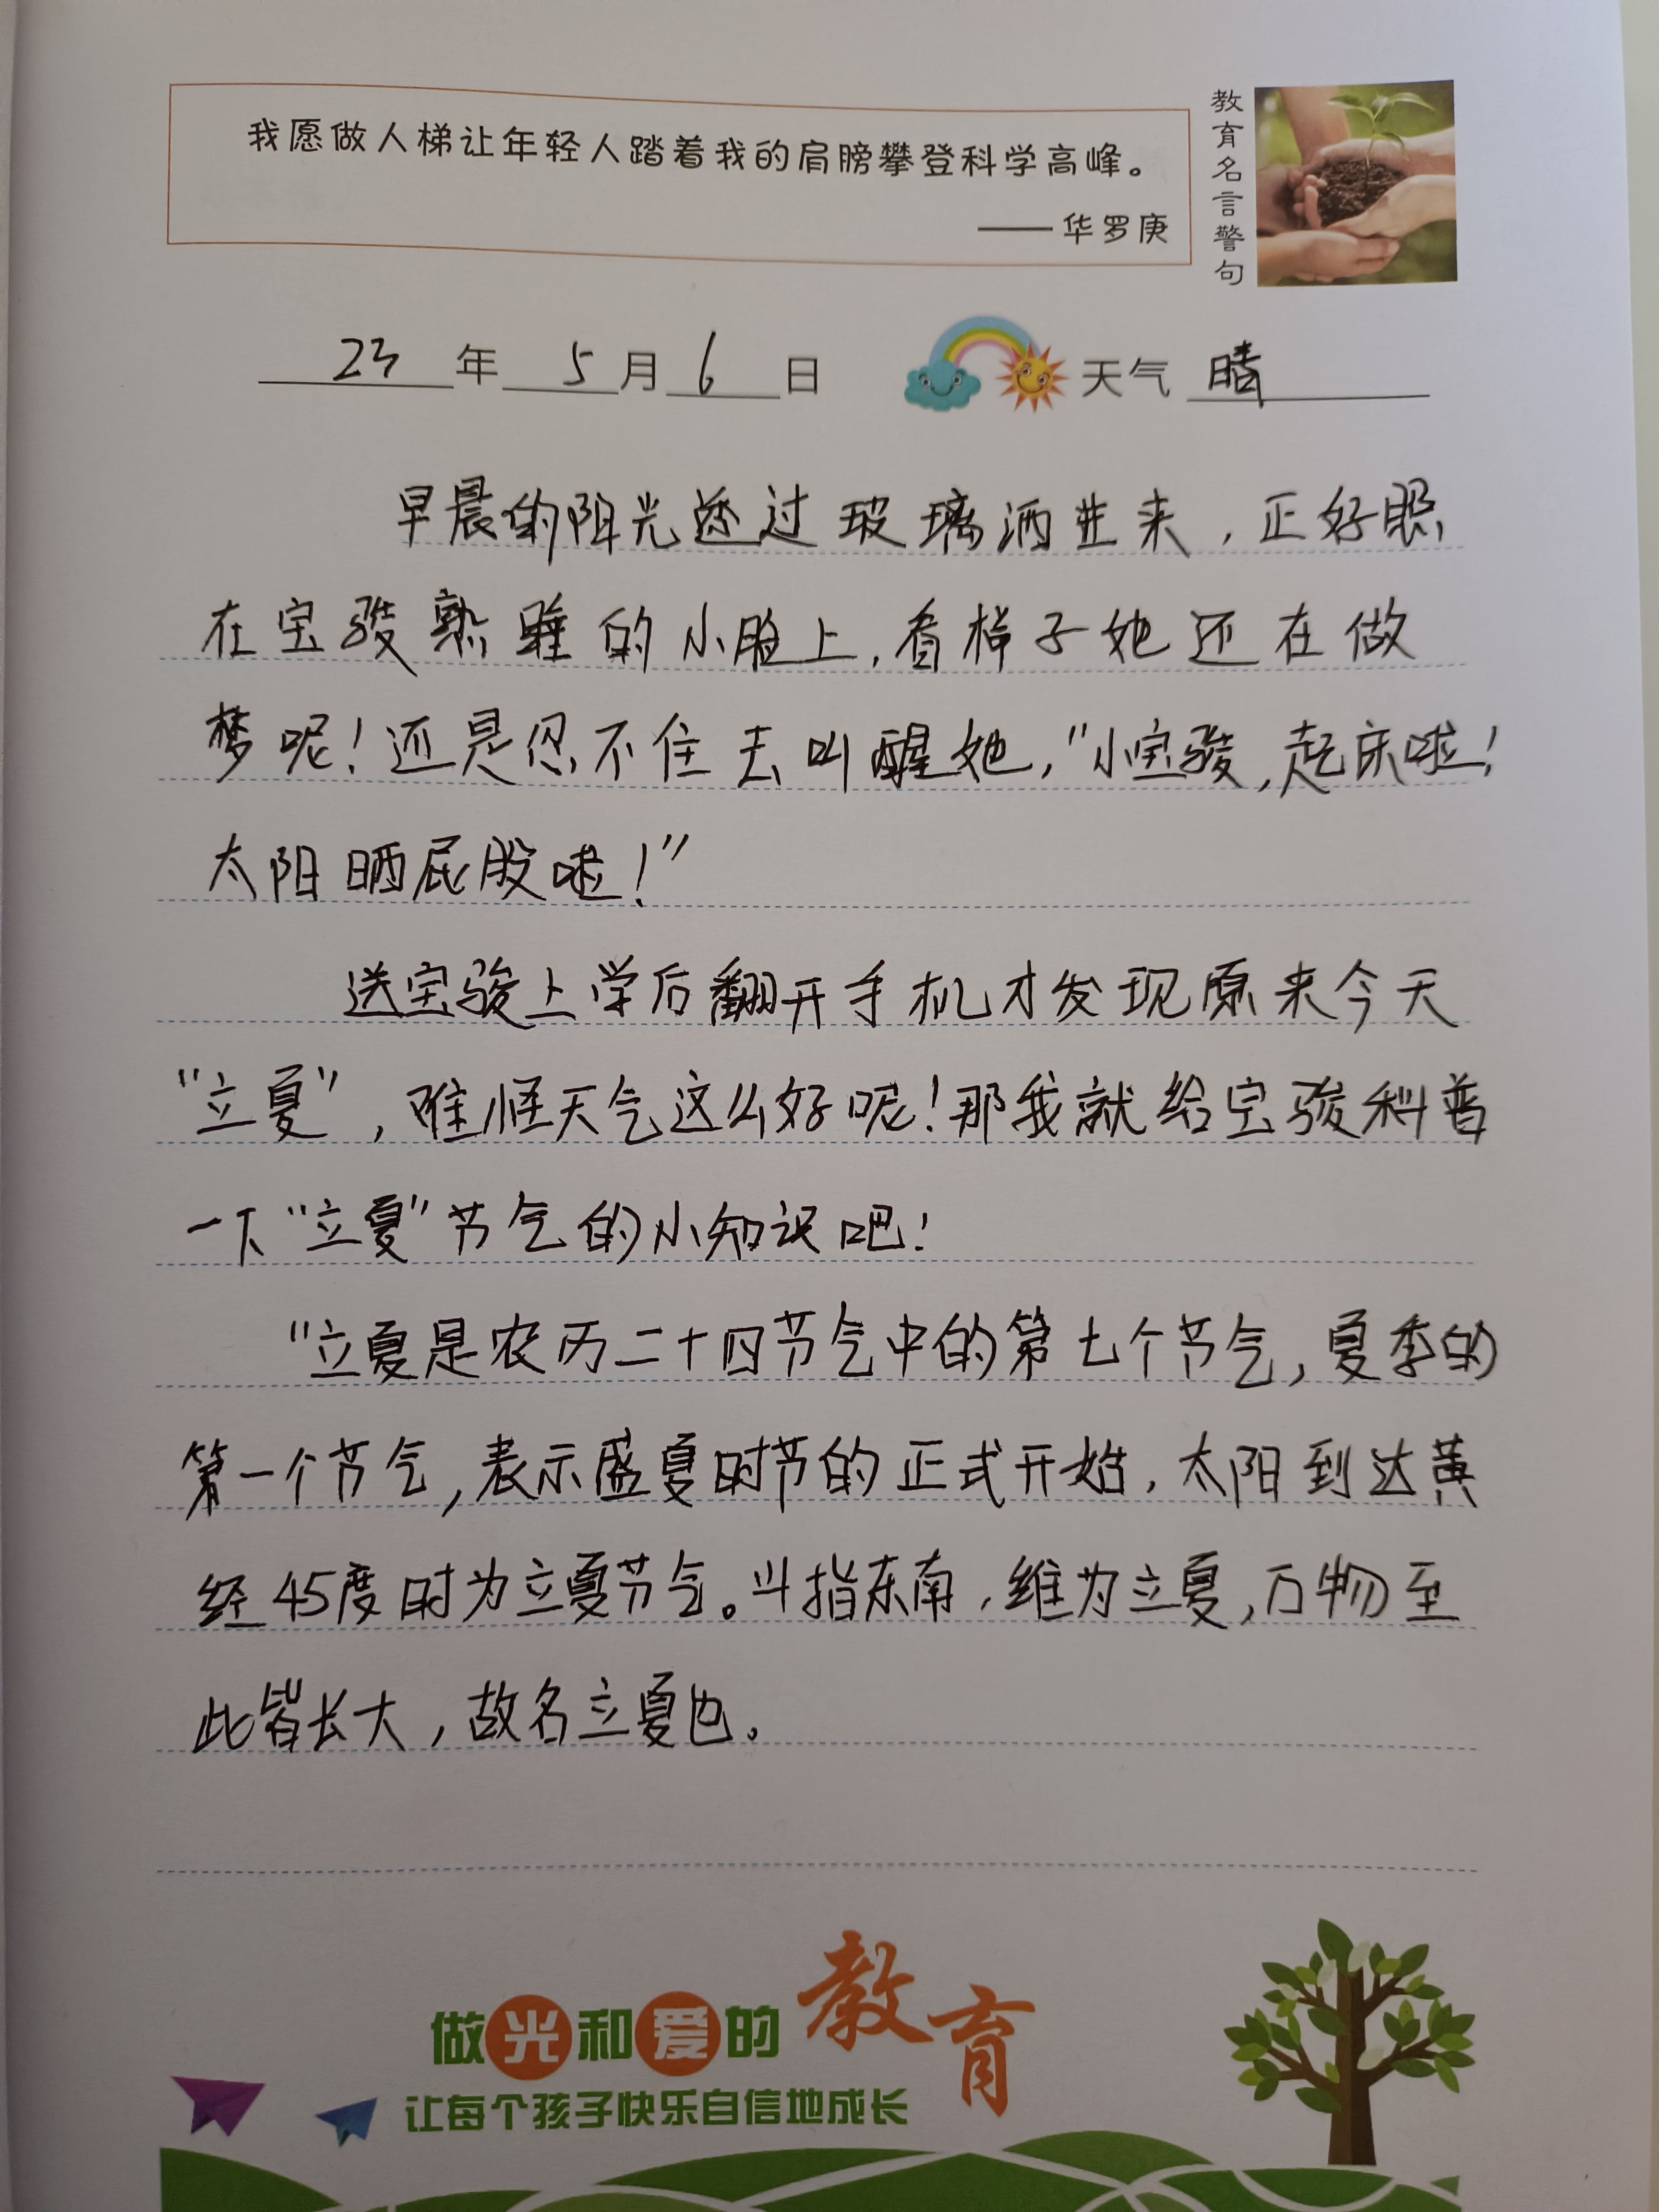 我愿做人梯让年轻人踏着我的肩膀攀登科学高峰。
——华罗庚
教育名言警句
23年5月6日 天气 晴
早晨的阳光透过玻璃洒进来,正好照
在宝骏熟睡的小脸上,看样子她还在做
梦呢!还是忍不住去叫醒她,"小宝骏,起床啦!
太阳晒屁股啦!"
送宝骏上学后翻开手机才发现原来今天
"立夏",难怪天气这么好呢!那我就给宝骏科普
一下"立夏"节气的小知识吧!
"立夏是农历二十四节气中的第七个节气,夏季的
第一个节气,表示盛夏时节的正式开始,太阳到达黄
经45度时为立夏节气。斗指东南,维为立夏,万物至
此皆长大,故名立夏也。
做光和爱的教育
让每个孩子快乐自信地成长